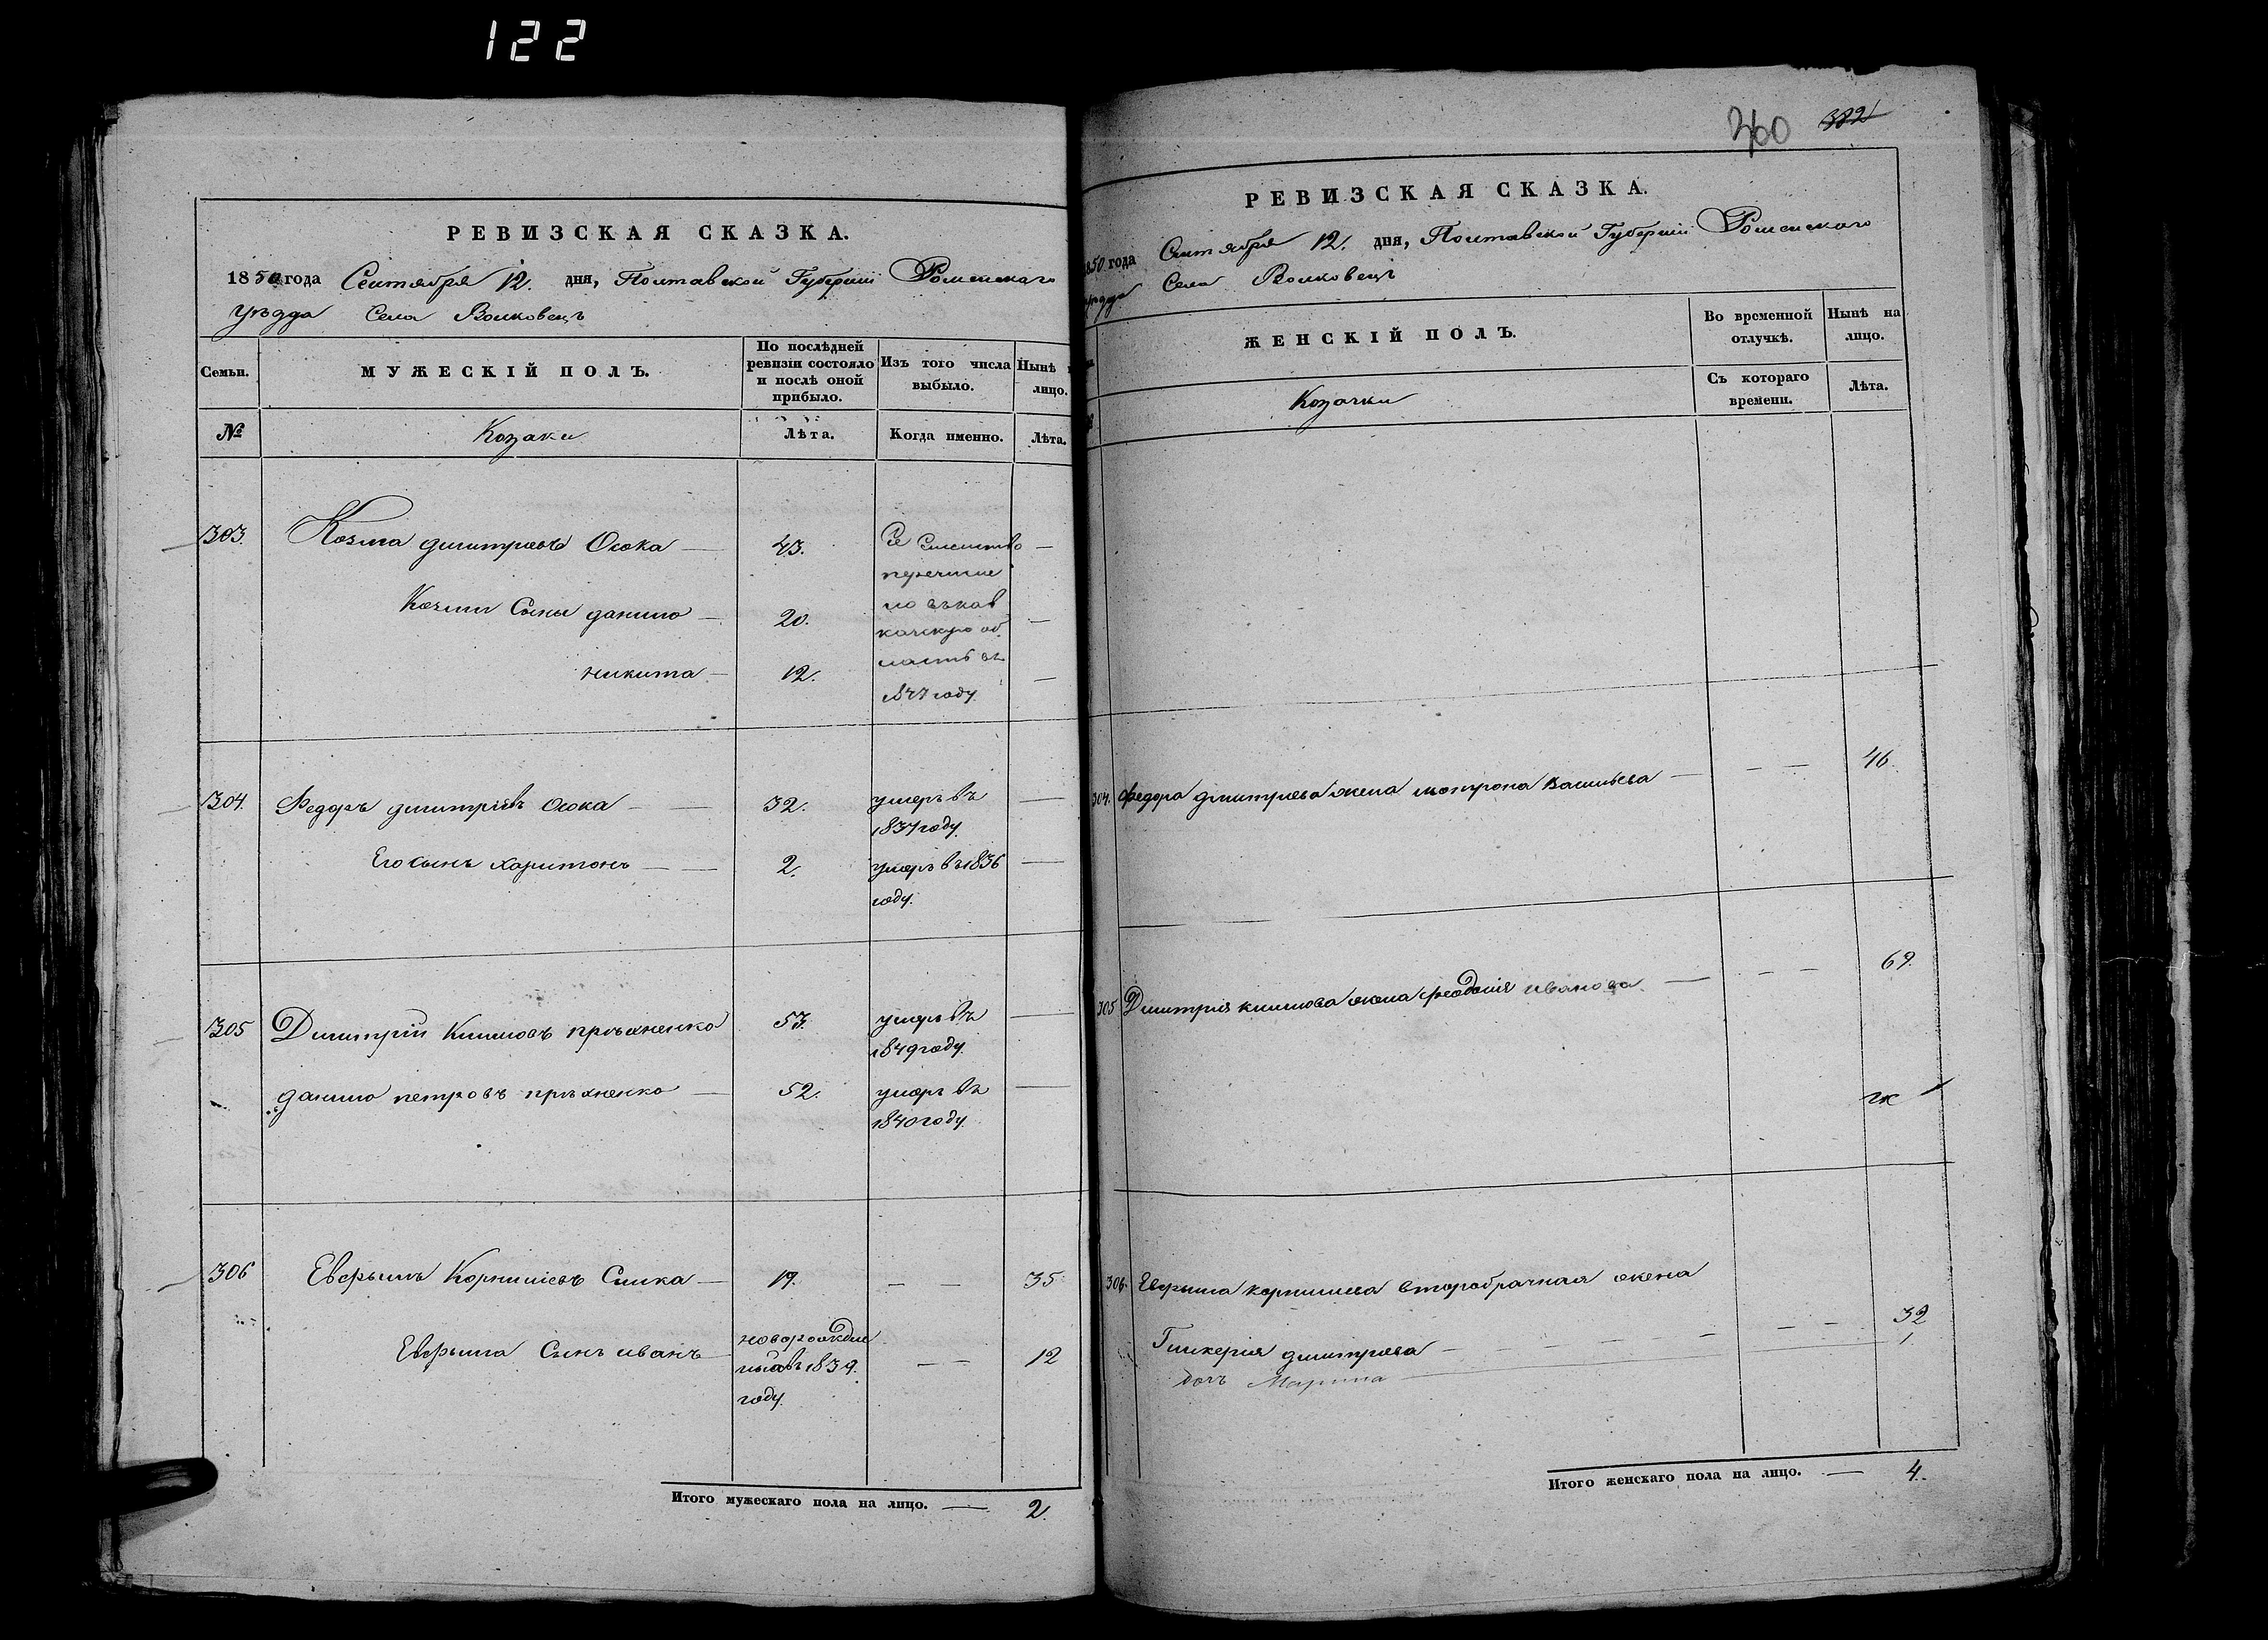 122
РЕВИЗСКАЯ СКАЗКА.
1850 года Сентября 12. дня, Полтавской Губернiи Роменского
Уѣзда Села Волковецъ
Семьи.
МУЖЕСКIЙ ПОЛЪ.
По послѣдней ревизiи состояло и послѣ оной прибыло.
Изъ того числа выбыло.
Нынѣ
лицо.
№
Козаки
Лѣта.
Когда именно.
Лѣта.
303. Козма дмитріевъ Осока — 43. Сѣ Семейство —
перечисле
Козми Сыны данило — 20. но въкав —
казскую об
никита — 12. ласть въ —
1847 году.
304. Федоръ дмитріевъ Осока — 32. умеръ въ —
1837 году.
Его сынъ харитонъ — 2. умеръ въ 1836 —
году.
305 Димитрій Климовъ пръхненко 53. умеръ въ —
1849 году.
данило петровъ пръхненко — 52. умеръ въ —
1840 году.
306 Евфымъ Корниліевъ Слика — 19. — — 35
Евфыма Сынъ иванъ новорожде — — 12
ный въ 1839.
году.
Итого мужескаго пола на лицо. — 2.
360 382
РЕВИЗСКАЯ СКАЗКА.
1850 года Сентября 12. дня, Полтавской Губернiи Роменского
уѣзда Села Волковецъ
ЖЕНСКIЙ ПОЛЪ.
Во временной отлучкѣ.
Нынѣ на лицо.
Козачки
Съ котораго времени.
Лѣта.
304. Федора дмитріева жена мотрона Васильева — — — 46.
305 Димитрія климова жена феодосія иванова — — — 69.
306. Евфыма корниліева второбрачная жена
Гликерія дмитріева — — — — — 32
дочь Марина — 1
Итого женскаго пола на лицо. — 4.